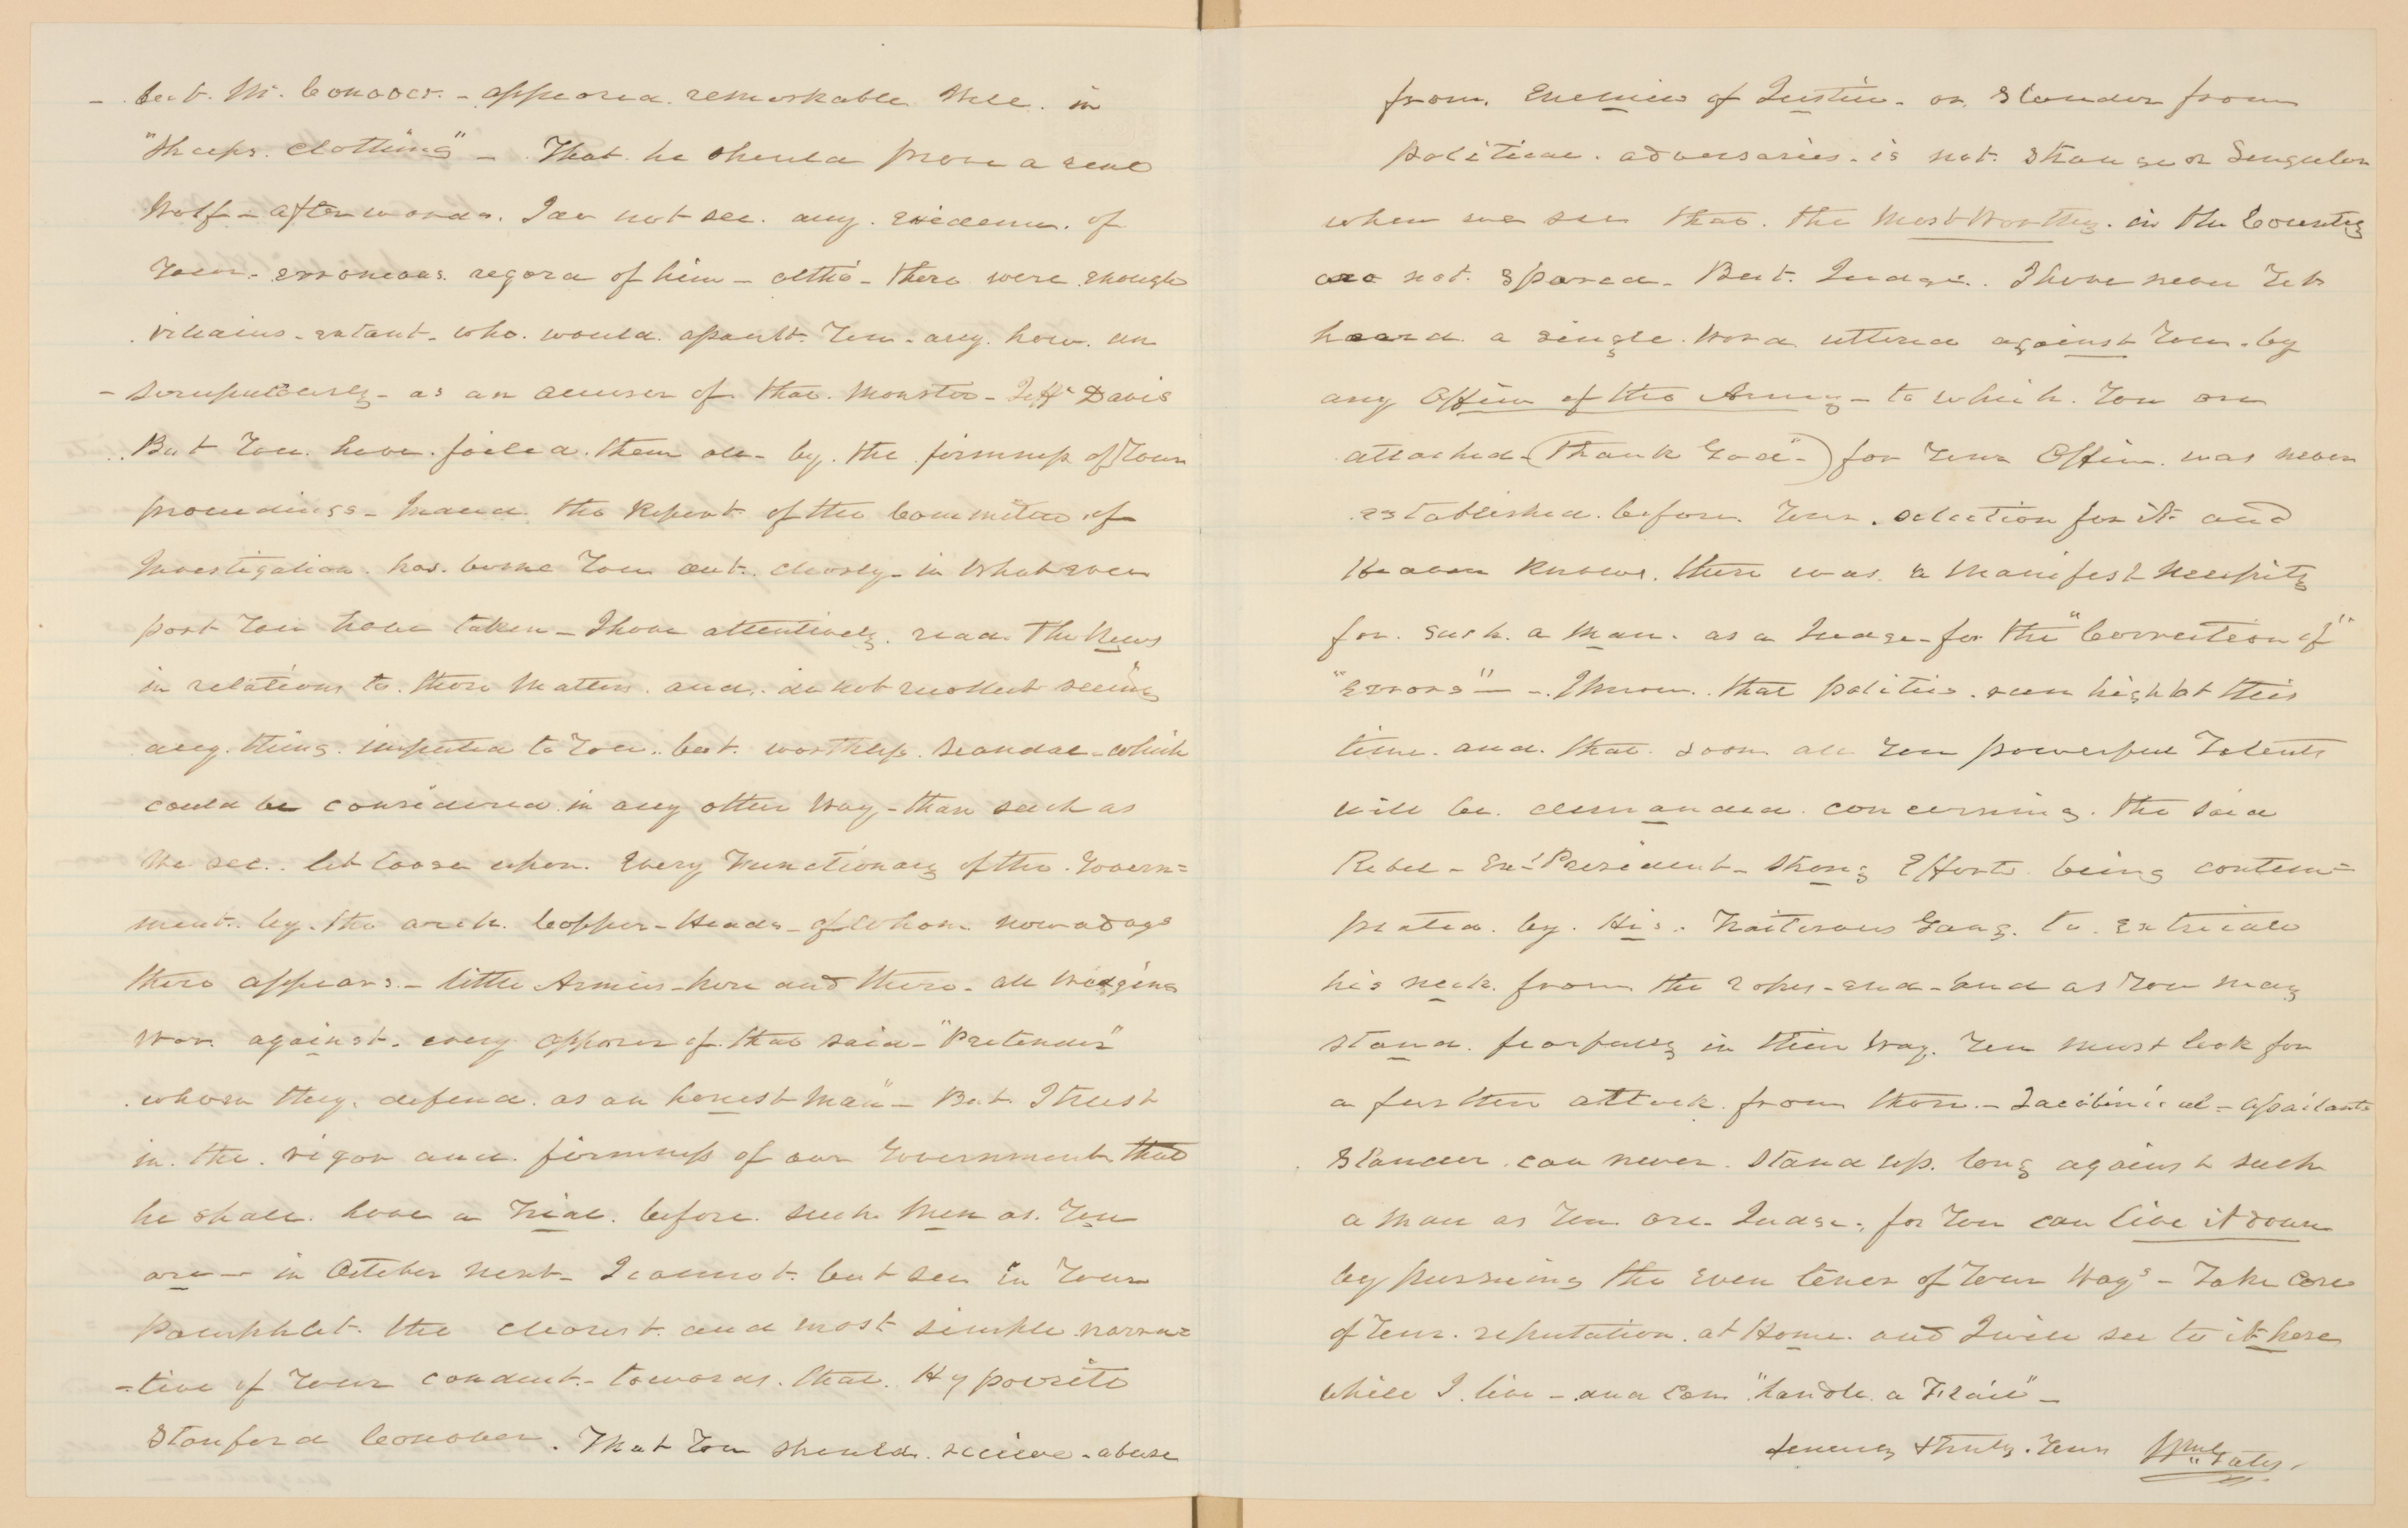 - but. Mr. Conover. - appeared. remarkable. Well. in
"Sheeps. Clothing" - That. he should prove a real
Wolf - afterwards. I do not see. any. evidence. of
Your. erroneous. regard of him - altho' - there were enough
villains. extant. who. would. assault. You - any. how. un
- scrupulously - as an accuser of that. Monster - Jeff. Davis
But You. have. foiled. them all - by. the firmness of Your
proceedings - and. the Report of the Committee of
Investigation. has. borne You out. clearly - in Whatever
part You have taken - I have attentively. read. The News
in relations to. those Matters. and. do not recollect seeing
any. thing. imputed to You.. but. worthless. Scandal - which
could be considered. in any other Way - than such as
We see.. let loose upon. Every Functionary of the. Govern=
ment.. by. the arch. Copper-Heads - of Whom. nowadays
there appears. - little Armies - here and there - all Wageing
War. against. every opposer of. that said - "Pretender"
whom they. defend. as an honest Man" - But I trust
in. the. vigor and. firmness of our Government that
he shall. have a Trial. before. such Men as. You
are - in October next - I cannot. but see in Your
Pamphlet. the clearest. and most simple. narra=
-tive of Your conduct. - towards. that. Hypocrite
Stanford Conover. That You should. receive - abuse
from. Enemies of Justice. or. Slander from
political. adversaries. is not. strange or Singular
when we see that. the Most Worthy. in the Country
are not. spared - But. Judge. I have never Yet
heard. a single. Word uttered against You. by
any Officer of the Army - to which. You are
attached - (Thank God" -) for Your Office. was never
established. before. Your. selection for it. and
Heaven Knows. there was. a manifest Necessity
for. such. a Man. as a Judge - for the "Correction of"
"Errors" - - I know. that politics. run high at this
time. and. that. soon. all Your powerful Talents
will be. demanded. concerning. the said
Rebel - Ex-President - strong Efforts. being contem=
plated. by. His. Traitorous Gang. to. extricate
his neck. from the ropes-end - and as You may
stand. fearfully in their Way. You must look for
a further attack. from those. - Jacobinical - assailants
Slander. can never. stand up. long against such
a Man as You are. Judge., for You can live it down
by pursuing the even tenor of Your Ways - Take Care
of Your. reputation. at Home. and I will see to it here
while I. live - and can "handle. a Flail" -
truly. Your Wm Yates.